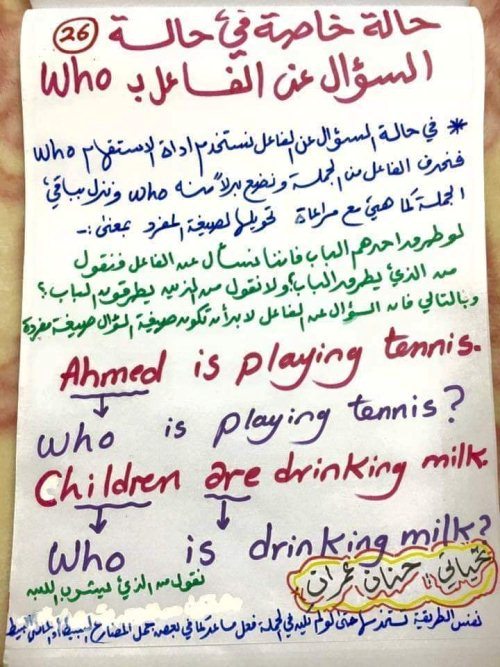 حالة خاصة في حالة (26)
السؤال عن الفاعل بـ Who
* في حالة السؤال عن الفاعل نستخدم اداة الاستفهام Who
فنحذف الفاعل من الجملة ونضع بدلاً منه who وننزل بباقي
الجملة كما هي مع مراعاة تحويلها لصيغة المفرد بمعنى :-
لو طرق احدهم الباب فاننا نسأل عن الفاعل فنقول
من الذي يطرق الباب؟ ولا نقول من الذين يطرقون الباب؟
وبالتالي فان السؤال عن الفاعل لا بد أن تكون صيغة السؤال صيغة مفردة
Ahmed is playing tennis.
who is playing tennis?
Children are drinking milk.
Who is drinking milk?
نقول من الذي يشرب اللبن
تحياتي حنان عمران
نفس الطريقة نستخدمها حتى لو لم يكن في الجملة فعل مساعد كما في بعض جمل المضارع البسيط أو الماضي البسيط